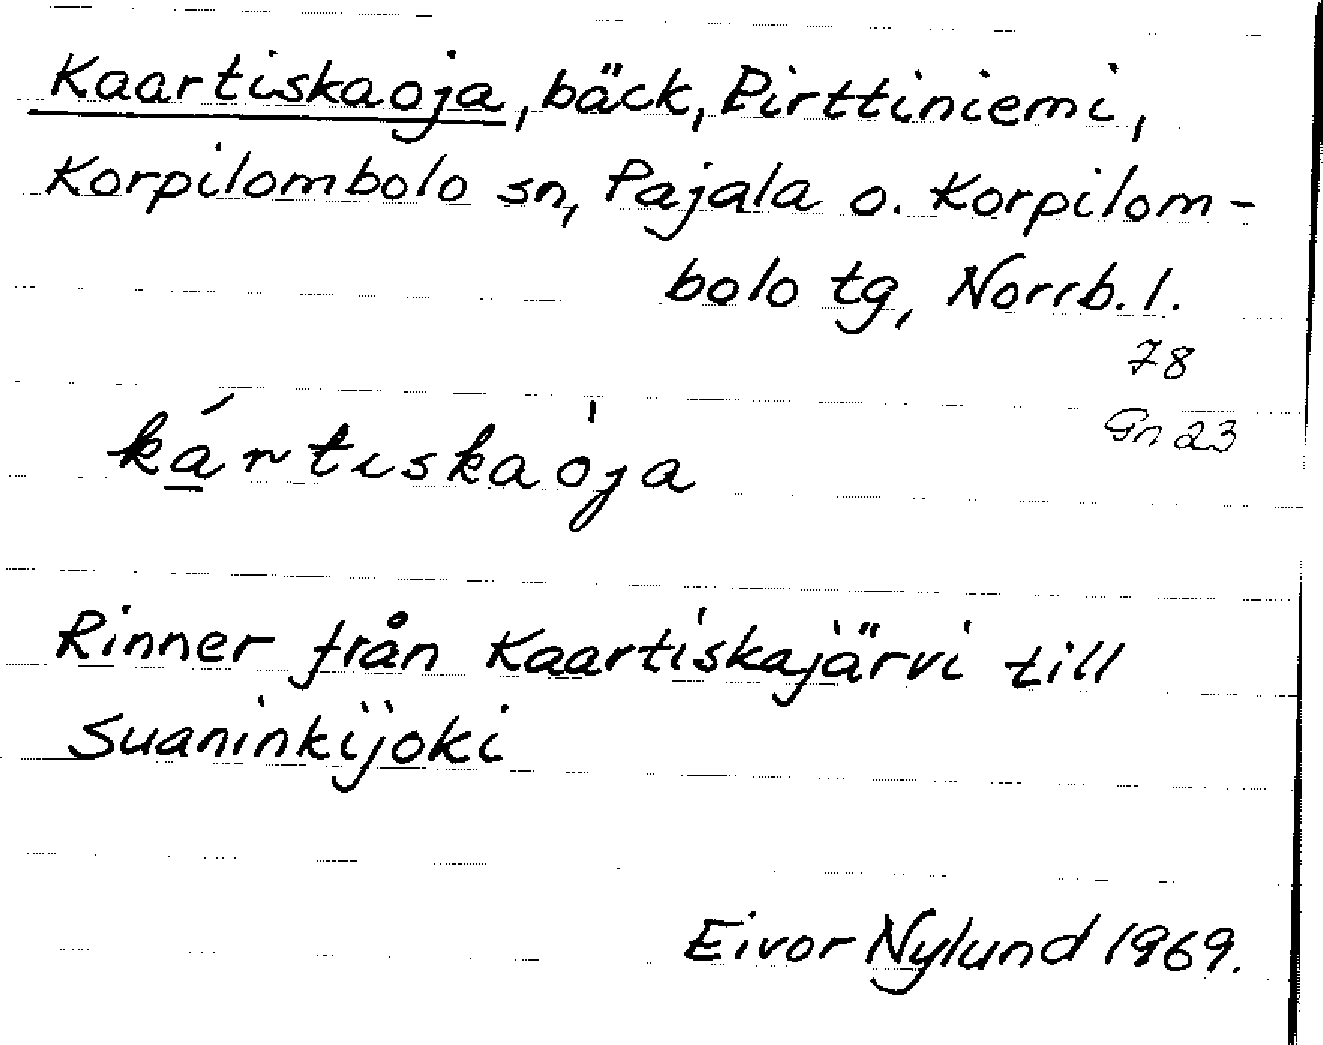 Kaartiskaoja, bäck, Pirttiniemi,
Korpilombolo sn, Pajala o. Korpilom-
bolo tg, Norrb. l.
78
Gn 23
ká̱rtiskaòja
Rinner från Kaartiskajärvi till
Suaninkijoki
Eivor Nylund 1969.